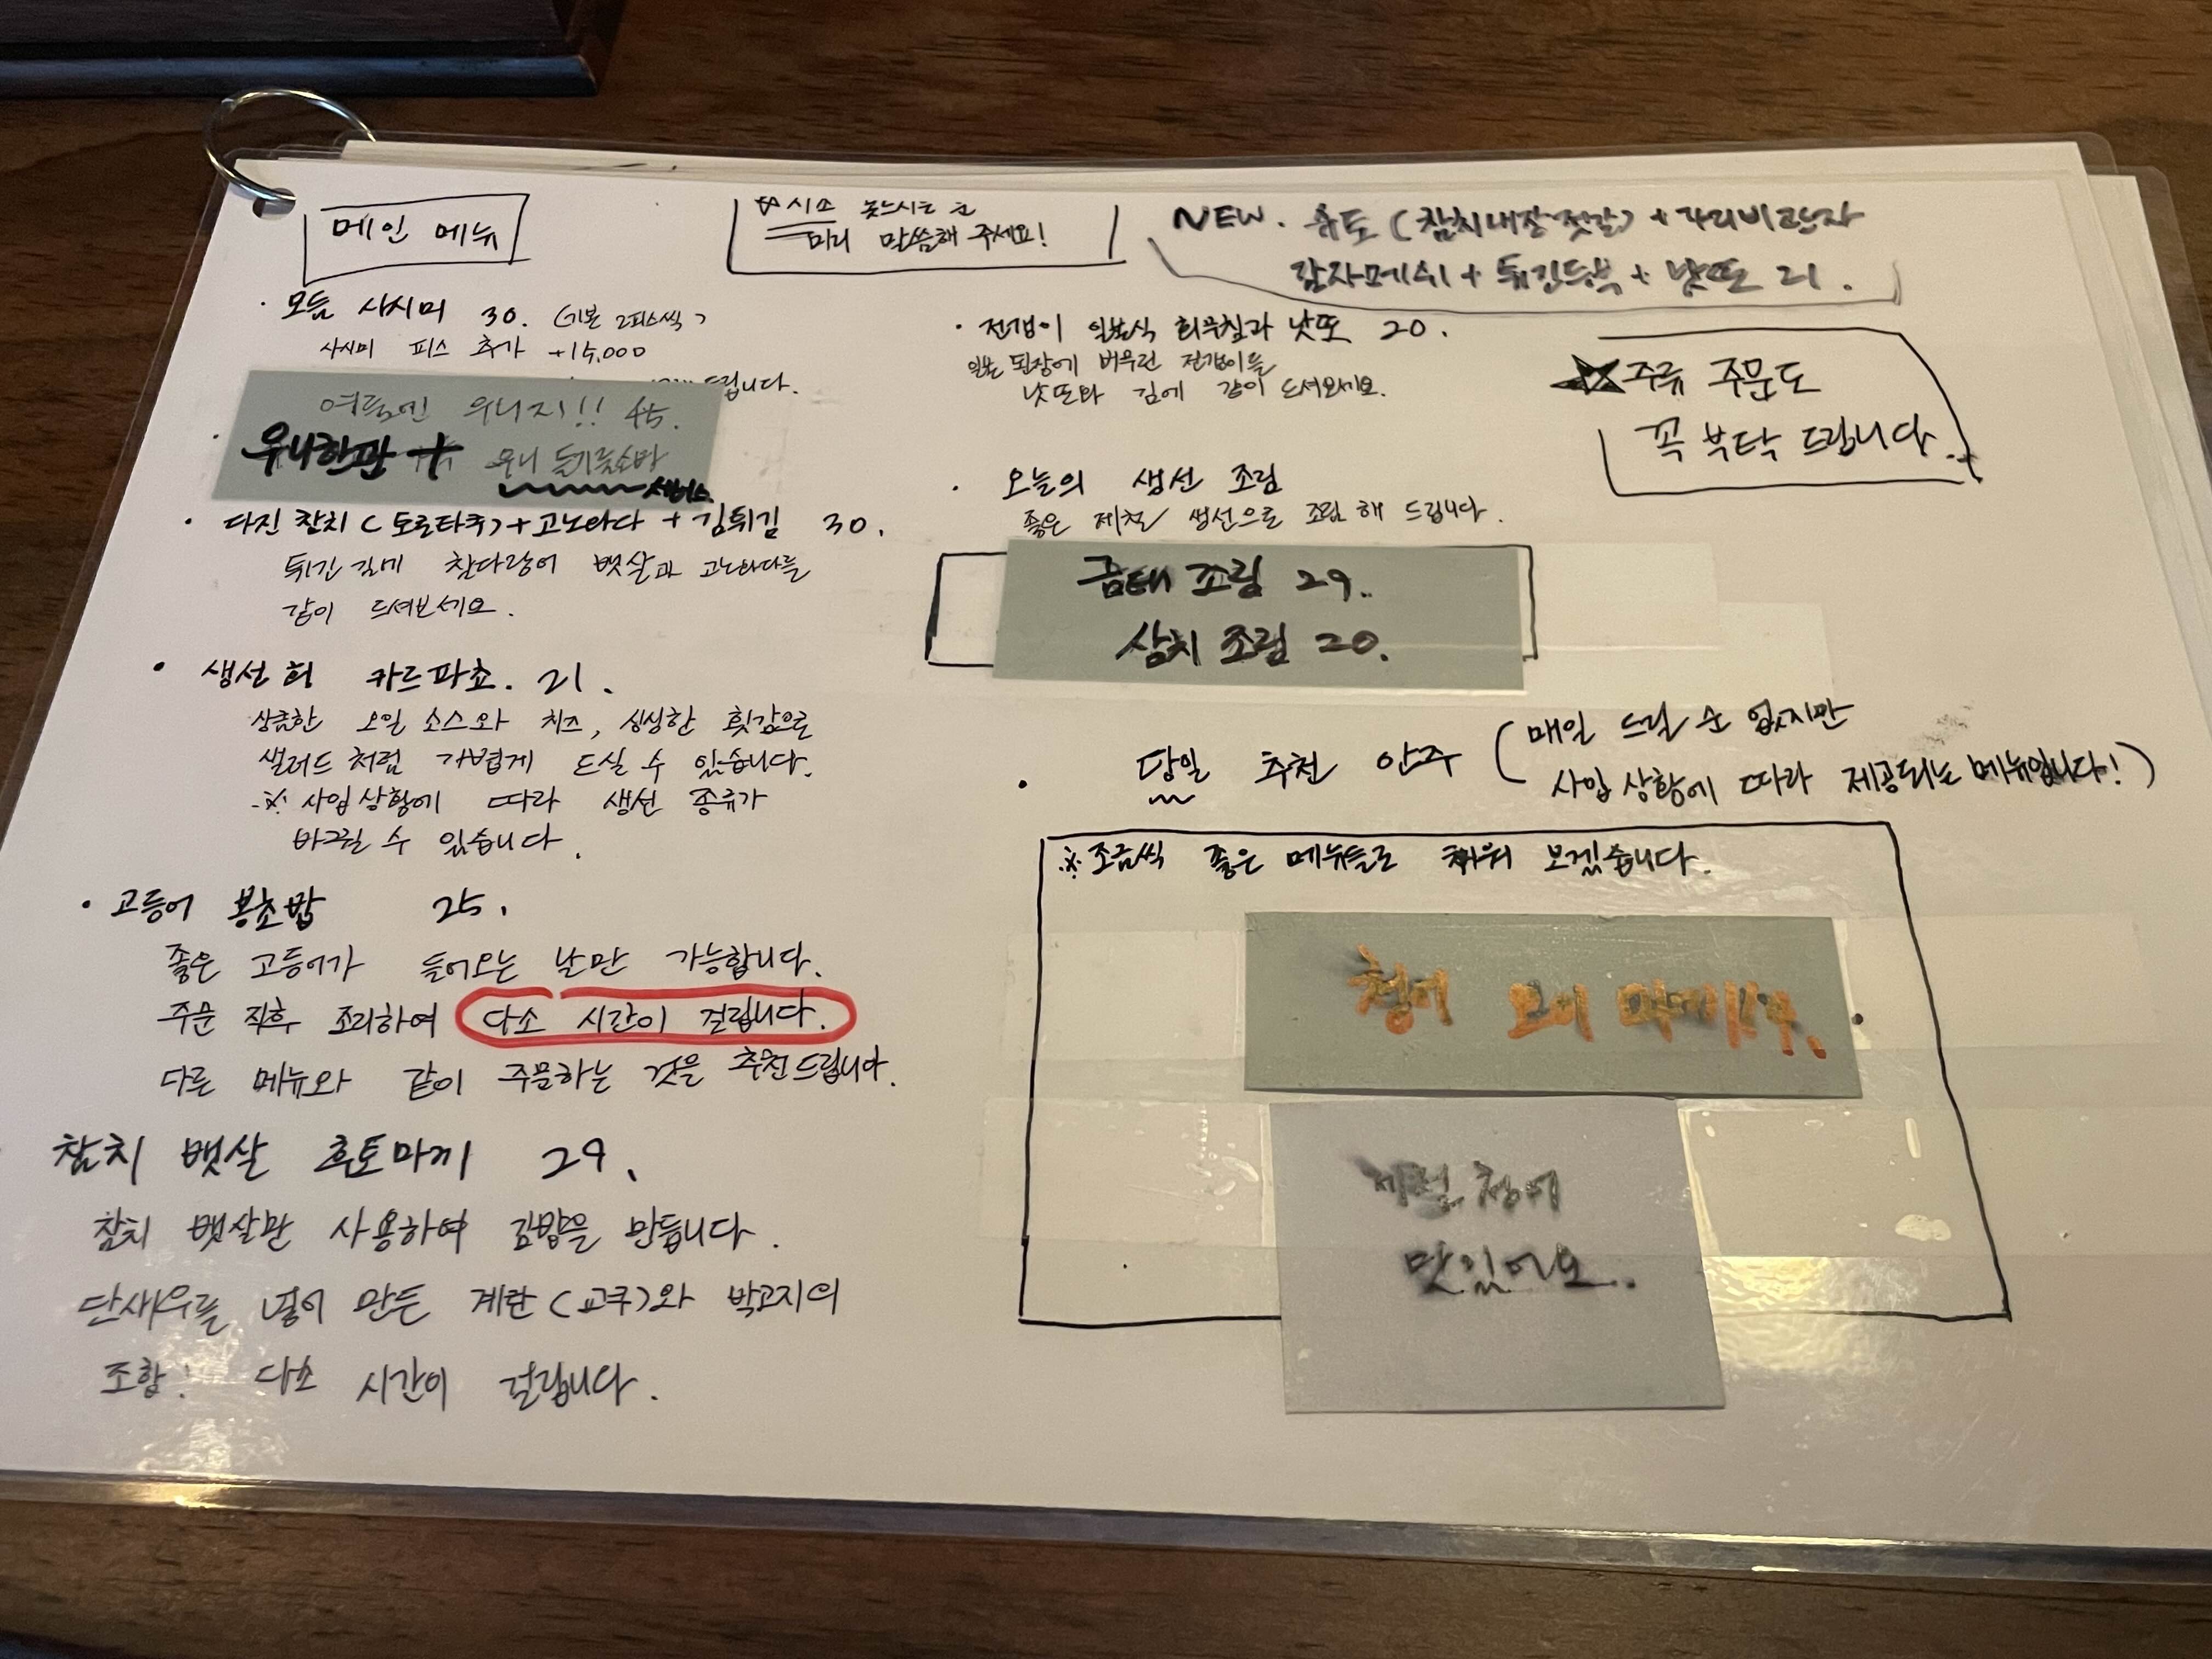 메인 메뉴
· 모듬 사시미 30. (기본 2피스씩)
사시미 피스 추가 +15,000
드립니다.
여름엔 우니지!! 45.
우니한판 + 우니 들기름소바
서비스
· 다진 참치(토로타쿠)+고노와다+김튀김 30.
튀긴 김에 참다랑어 뱃살과 고노와다를
같이 드셔보세요.
· 생선회 카르파쵸. 21.
상큼한 오일 소스와 치즈, 싱싱한 횟감으로
샐러드처럼 가볍게 드실 수 있습니다.
※ 사입상황에 따라 생선 종류가
바뀔 수 있습니다.
· 고등어 봉초밥 25.
좋은 고등어가 들어오는 날만 가능합니다.
주문 직후 조리하여 다소 시간이 걸립니다.
다른 메뉴와 같이 주문하는 것을 추천드립니다.
참치 뱃살 후토마끼 29.
참치 뱃살만 사용하여 김밥을 만듭니다.
단새우를 넣어 만든 계란(교쿠)와 박고지의
조합! 다소 시간이 걸립니다.
☆시소 못드시는 분
미리 말씀해 주세요!
NEW. 슈토(참치내장젓갈)+가리비관자
감자메쉬+튀긴두부+낫또 21.
· 전갱이 일본식 회무침과 낫또 20.
일본 된장에 버무린 전갱이를
낫또와 김에 같이 드셔보세요.
★주류 주문도
꼭 부탁 드립니다.
· 오늘의 생선 조림
좋은 제철 생선으로 조림 해 드립니다.
금태 조림 29.
삼치 조림 20.
· 당일 추천 안주 (매일 드릴 순 없지만
사입 상황에 따라 제공되는 메뉴입니다!)
※ 조금씩 좋은 메뉴들로 채워 보겠습니다.
청어 오이 마끼 19.
제철 청어
맛있어요..